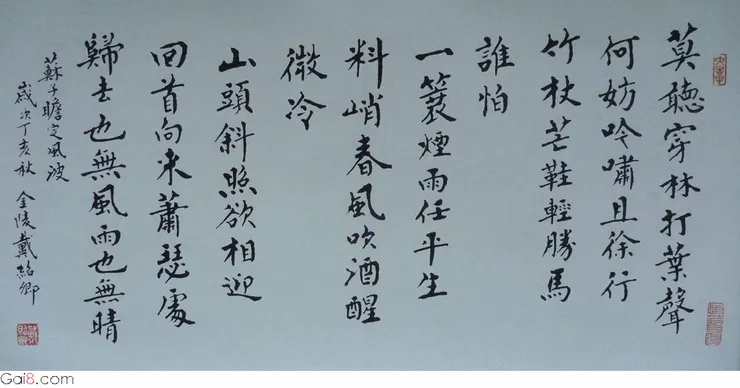 莫聽穿林打葉聲
何妨吟嘯且徐行
竹杖芒鞋輕勝馬
誰怕
一簑煙雨任平生
料峭春風吹酒醒
微冷
山頭斜照欲相迎
回首向来蕭瑟處
歸去也無風雨也無晴
蘇子瞻定風波
歲次丁亥秋 金陵戴紹卿
Gai8.com